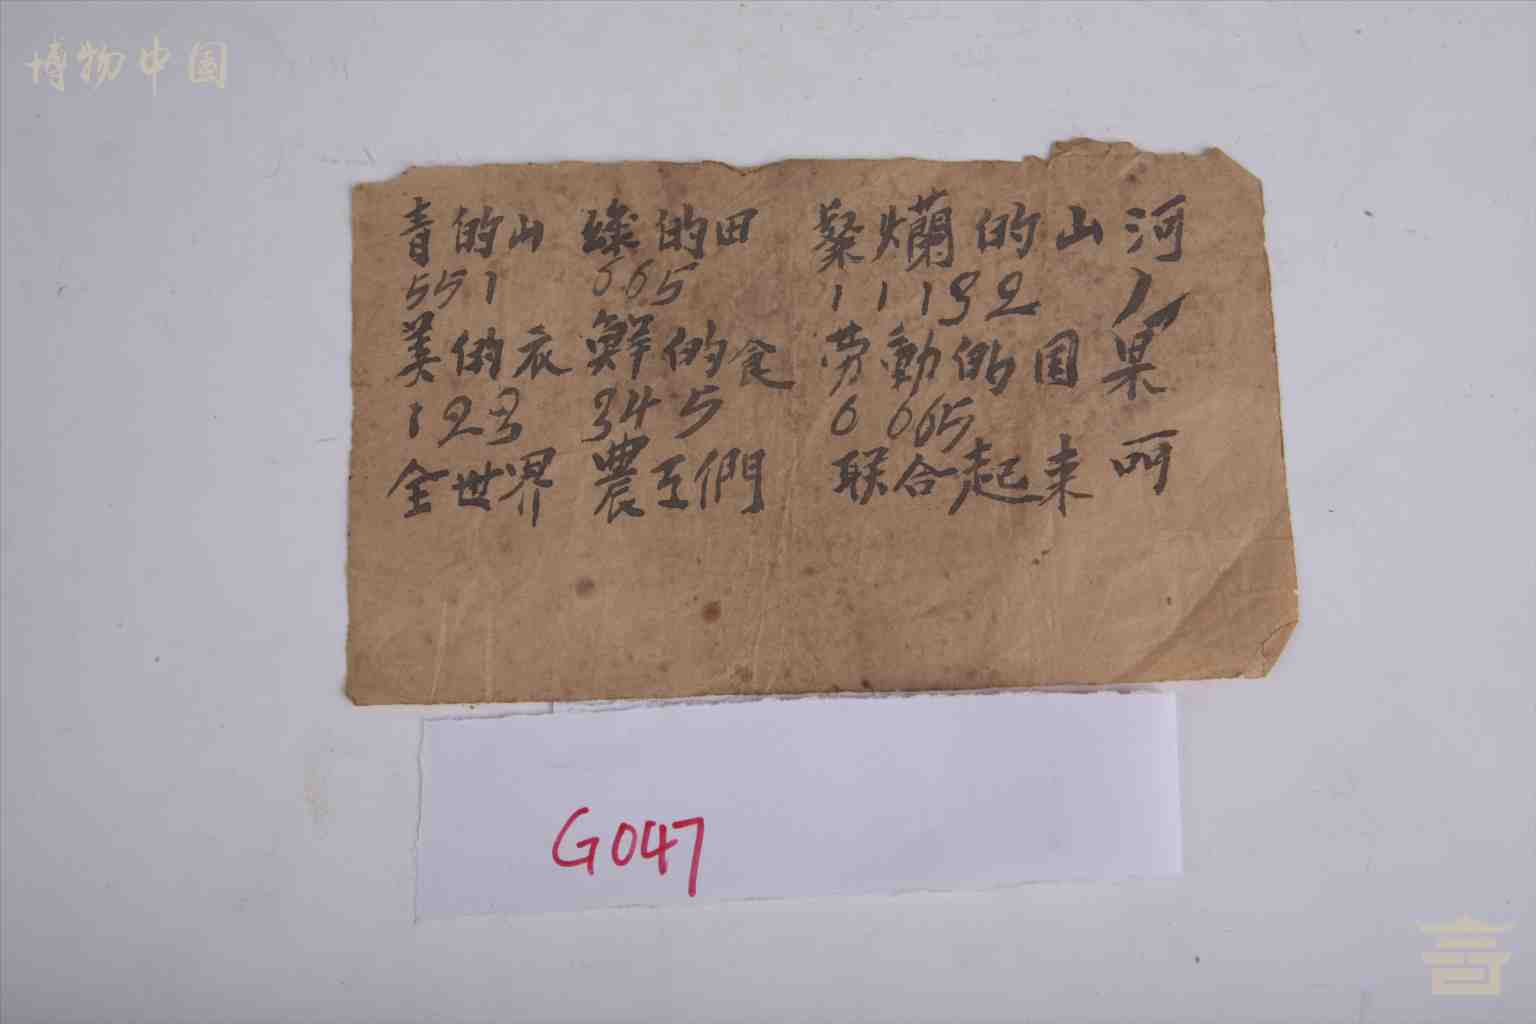 博物中国
青的山 绿的田 粲爛的山河
551 665 11132 1
美的衣 鮮的食 劳動的囯果
123 345 6 665
全世界 農工們 联合起来呵
G047